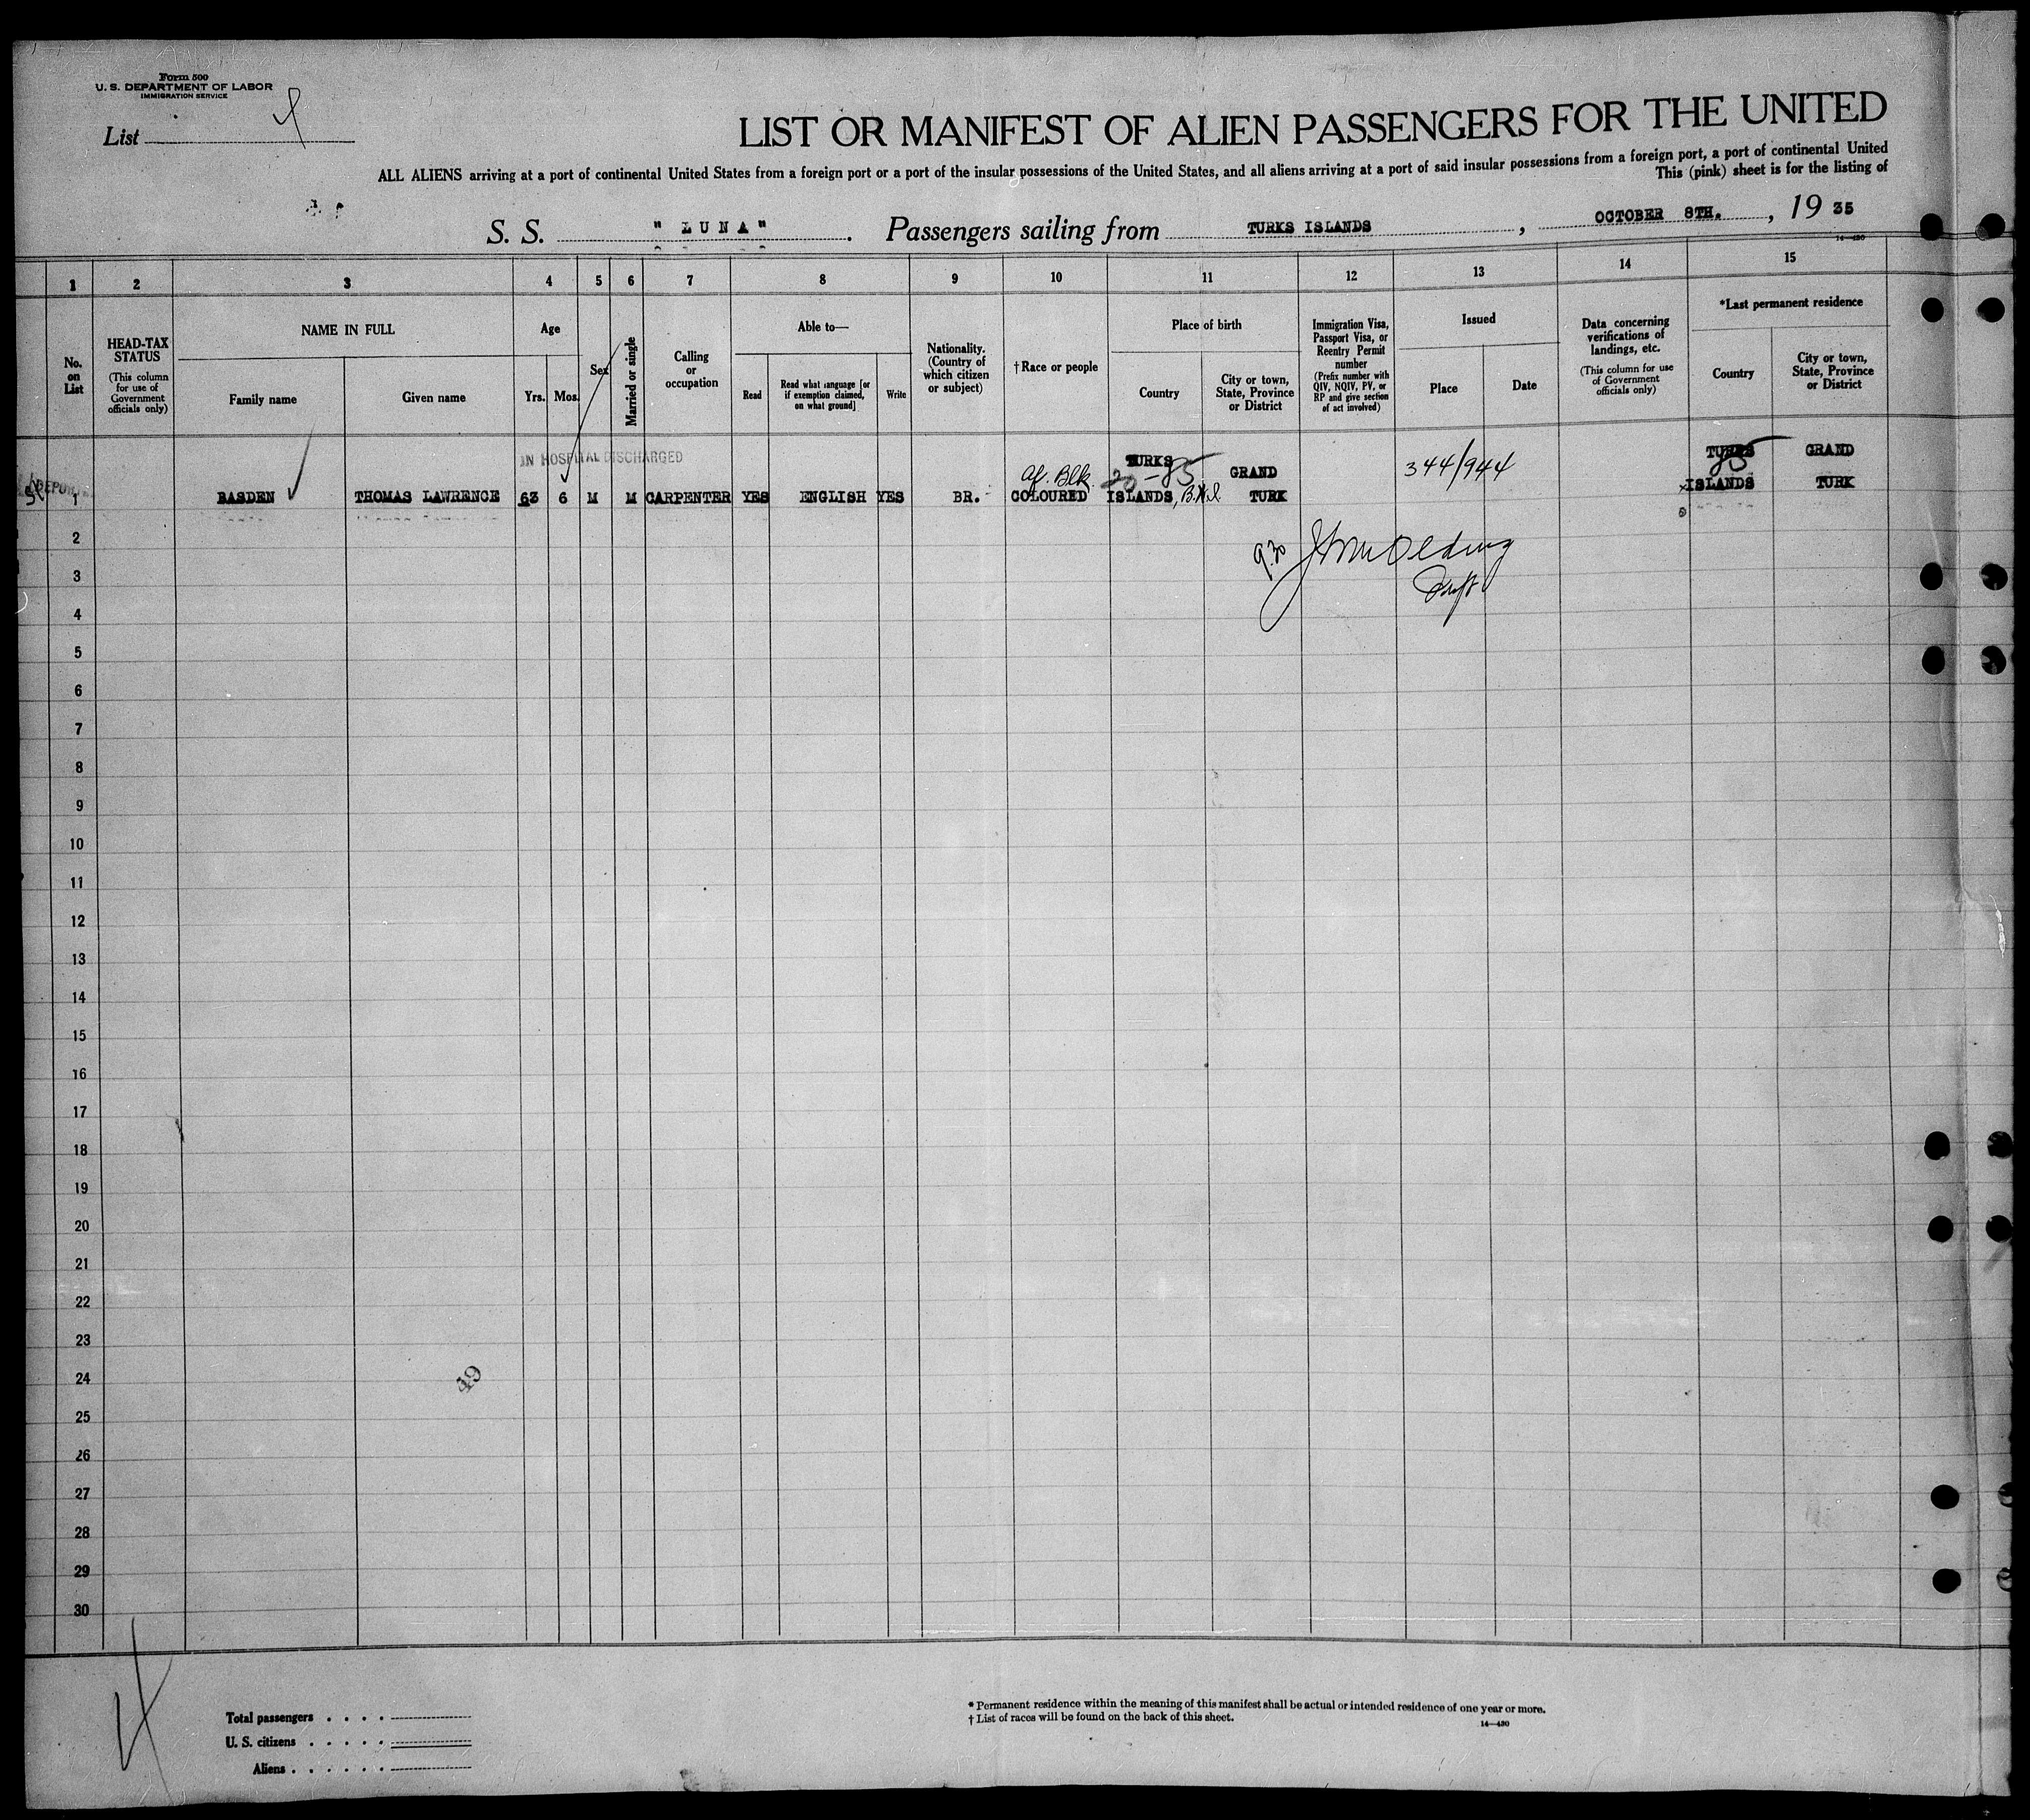 Form 500
U. S. DEPARTMENT OF LABOR
IMMIGRATION SERVICE
List
LIST OR MANIFEST OF ALIEN PASSENGERS FOR THE UNITED
ALL ALIENS arriving at a port of continental United States from a foreign port or a port of the insular possessions of the United States, and all aliens arriving at a port of said insular possessions from a foreign port, a port of continental United
This (pink) sheet is for the listing of
S. S. "LUNA". Passengers sailing from TURKS ISLANDS, OCTOBER 8TH., 19 35
14—430
1 2 3 4 5 6 7 8 9 10 11 12 13 14 15
No. on List
HEAD-TAX STATUS
(This column for use of Government officials only)
NAME IN FULL
Family name
Given name
Age
Yrs.
Mos.
Sex
Married or single
Calling or occupation
Able to—
Read
Read what language [or if exemption claimed, on what ground]
Write
Nationality. (Country of which citizen or subject)
†Race or people
Place of birth
Country
City or town, State, Province or District
Immigration Visa, Passport Visa, or Reentry Permit number
(Prefix number with QIV, NQIV, PV, or RP and give section of act involved)
Issued
Place
Date
Data concerning verifications of landings, etc.
(This column for use of Government officials only)
*Last permanent residence
Country
City or town, State, Province or District
IN HOSPITAL DISCHARGED
Af. Blk.
TURKS
20-85
GRAND
344/944
TURKS
85
GRAND
1 BASDEN THOMAS LAWRENCE 63 6 M M CARPENTER YES ENGLISH YES BR. COLOURED ISLANDS, B.W.I. TURK ISLANDS TURK
9.30
2
3
4
5
6
7
8
9
10
11
12
13
14
15
16
17
18
19
20
21
22
23
24
49
25
26
27
28
29
30
Total passengers . . . .
U. S. citizens . . . . .
Aliens . . . . . .
* Permanent residence within the meaning of this manifest shall be actual or intended residence of one year or more.
† List of races will be found on the back of this sheet.
14—430